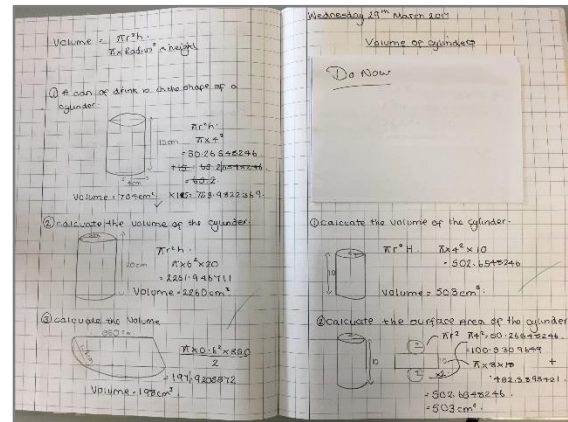 Volume = πr²h
π x Radius² x height
① A can of drink is in the shape of a
cylinder.
πr²h.
π x 4²
= 50.26548246
Volume = 754cm³
② calcuate the volume of the cylinder.
20cm
πr²h.
π x 6² x 20
= 2261.946711
Volume = 2260cm³
③ calcuate the Volume
π x 0.6² x 350
2
= 197.9203372
Volume = 198cm³.
Wednesday 29th March 2017
Volume of cylinders
Do Now
① calcuate the volume of the cylinder.
10
πr²H.
π x 4² x 10
= 502.6548246
Volume = 503cm³.
② calcuate the surface Area of the cylinder
10
πr²
π4² = 50.26548246.
= 100.5309649
+
= 502.6548246
= 503cm².